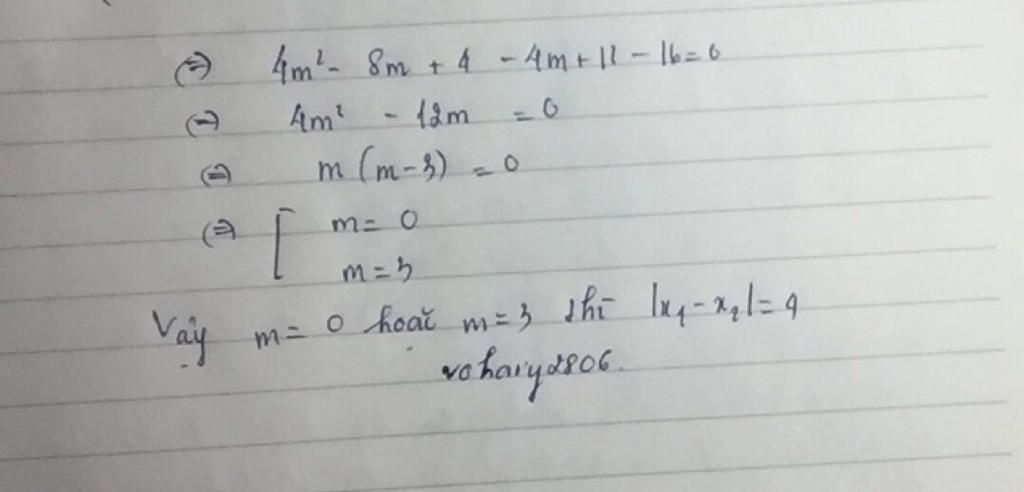 ⇔ 4m² - 8m + 4 - 4m + 12 - 16 = 0
⇔ 4m² - 12m = 0
⇔ m (m - 3) = 0
⇔ [ m = 0
m = 3
Vậy m = 0 hoặc m = 3 thì |x₁ - x₂| = 4
vohary2806.